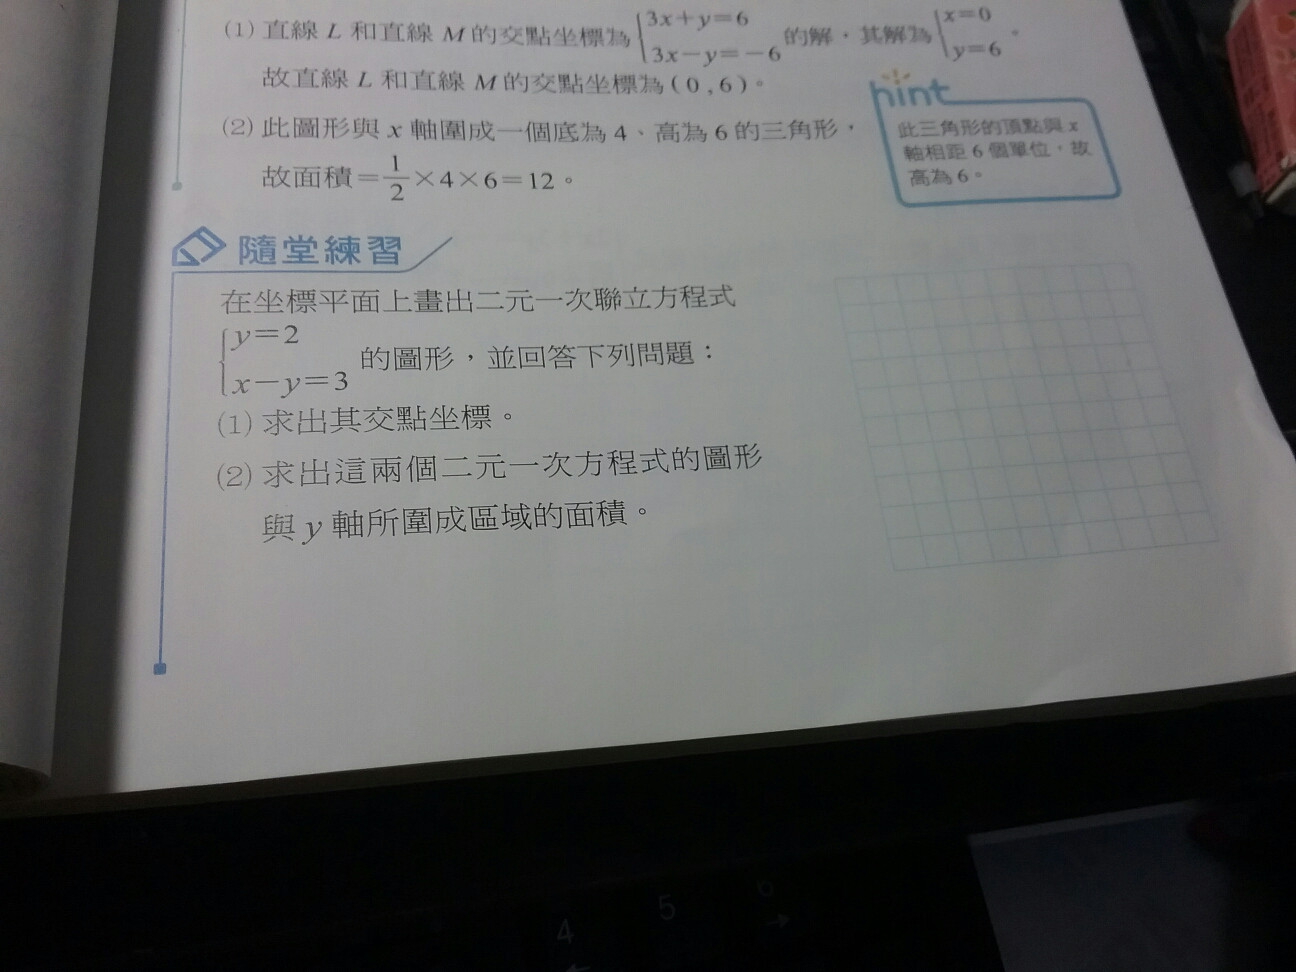 (1) 直線 L 和直線 M 的交點坐標為 { 3x+y=6 的解，其解為 { x=0 。
3x-y=-6 y=6
故直線 L 和直線 M 的交點坐標為 (0,6)。
(2) 此圖形與 x 軸圍成一個底為 4、高為 6 的三角形，
故面積=1/2×4×6=12。
hint
此三角形的頂點與 x
軸相距 6 個單位，故
高為 6。
隨堂練習
在坐標平面上畫出二元一次聯立方程式
{ y=2
x-y=3 的圖形，並回答下列問題：
(1) 求出其交點坐標。
(2) 求出這兩個二元一次方程式的圖形
與 y 軸所圍成區域的面積。
4
5